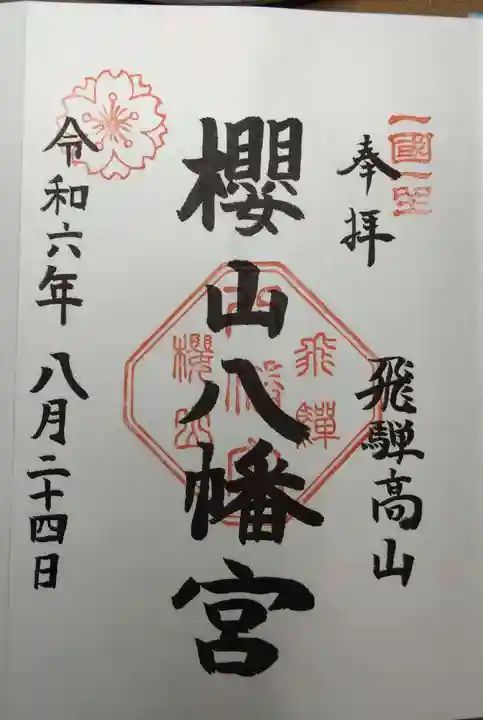 奉拝
一國一社
飛騨高山
櫻山八幡宮
飛騨
八幡宮
櫻山
令和六年八月二十四日